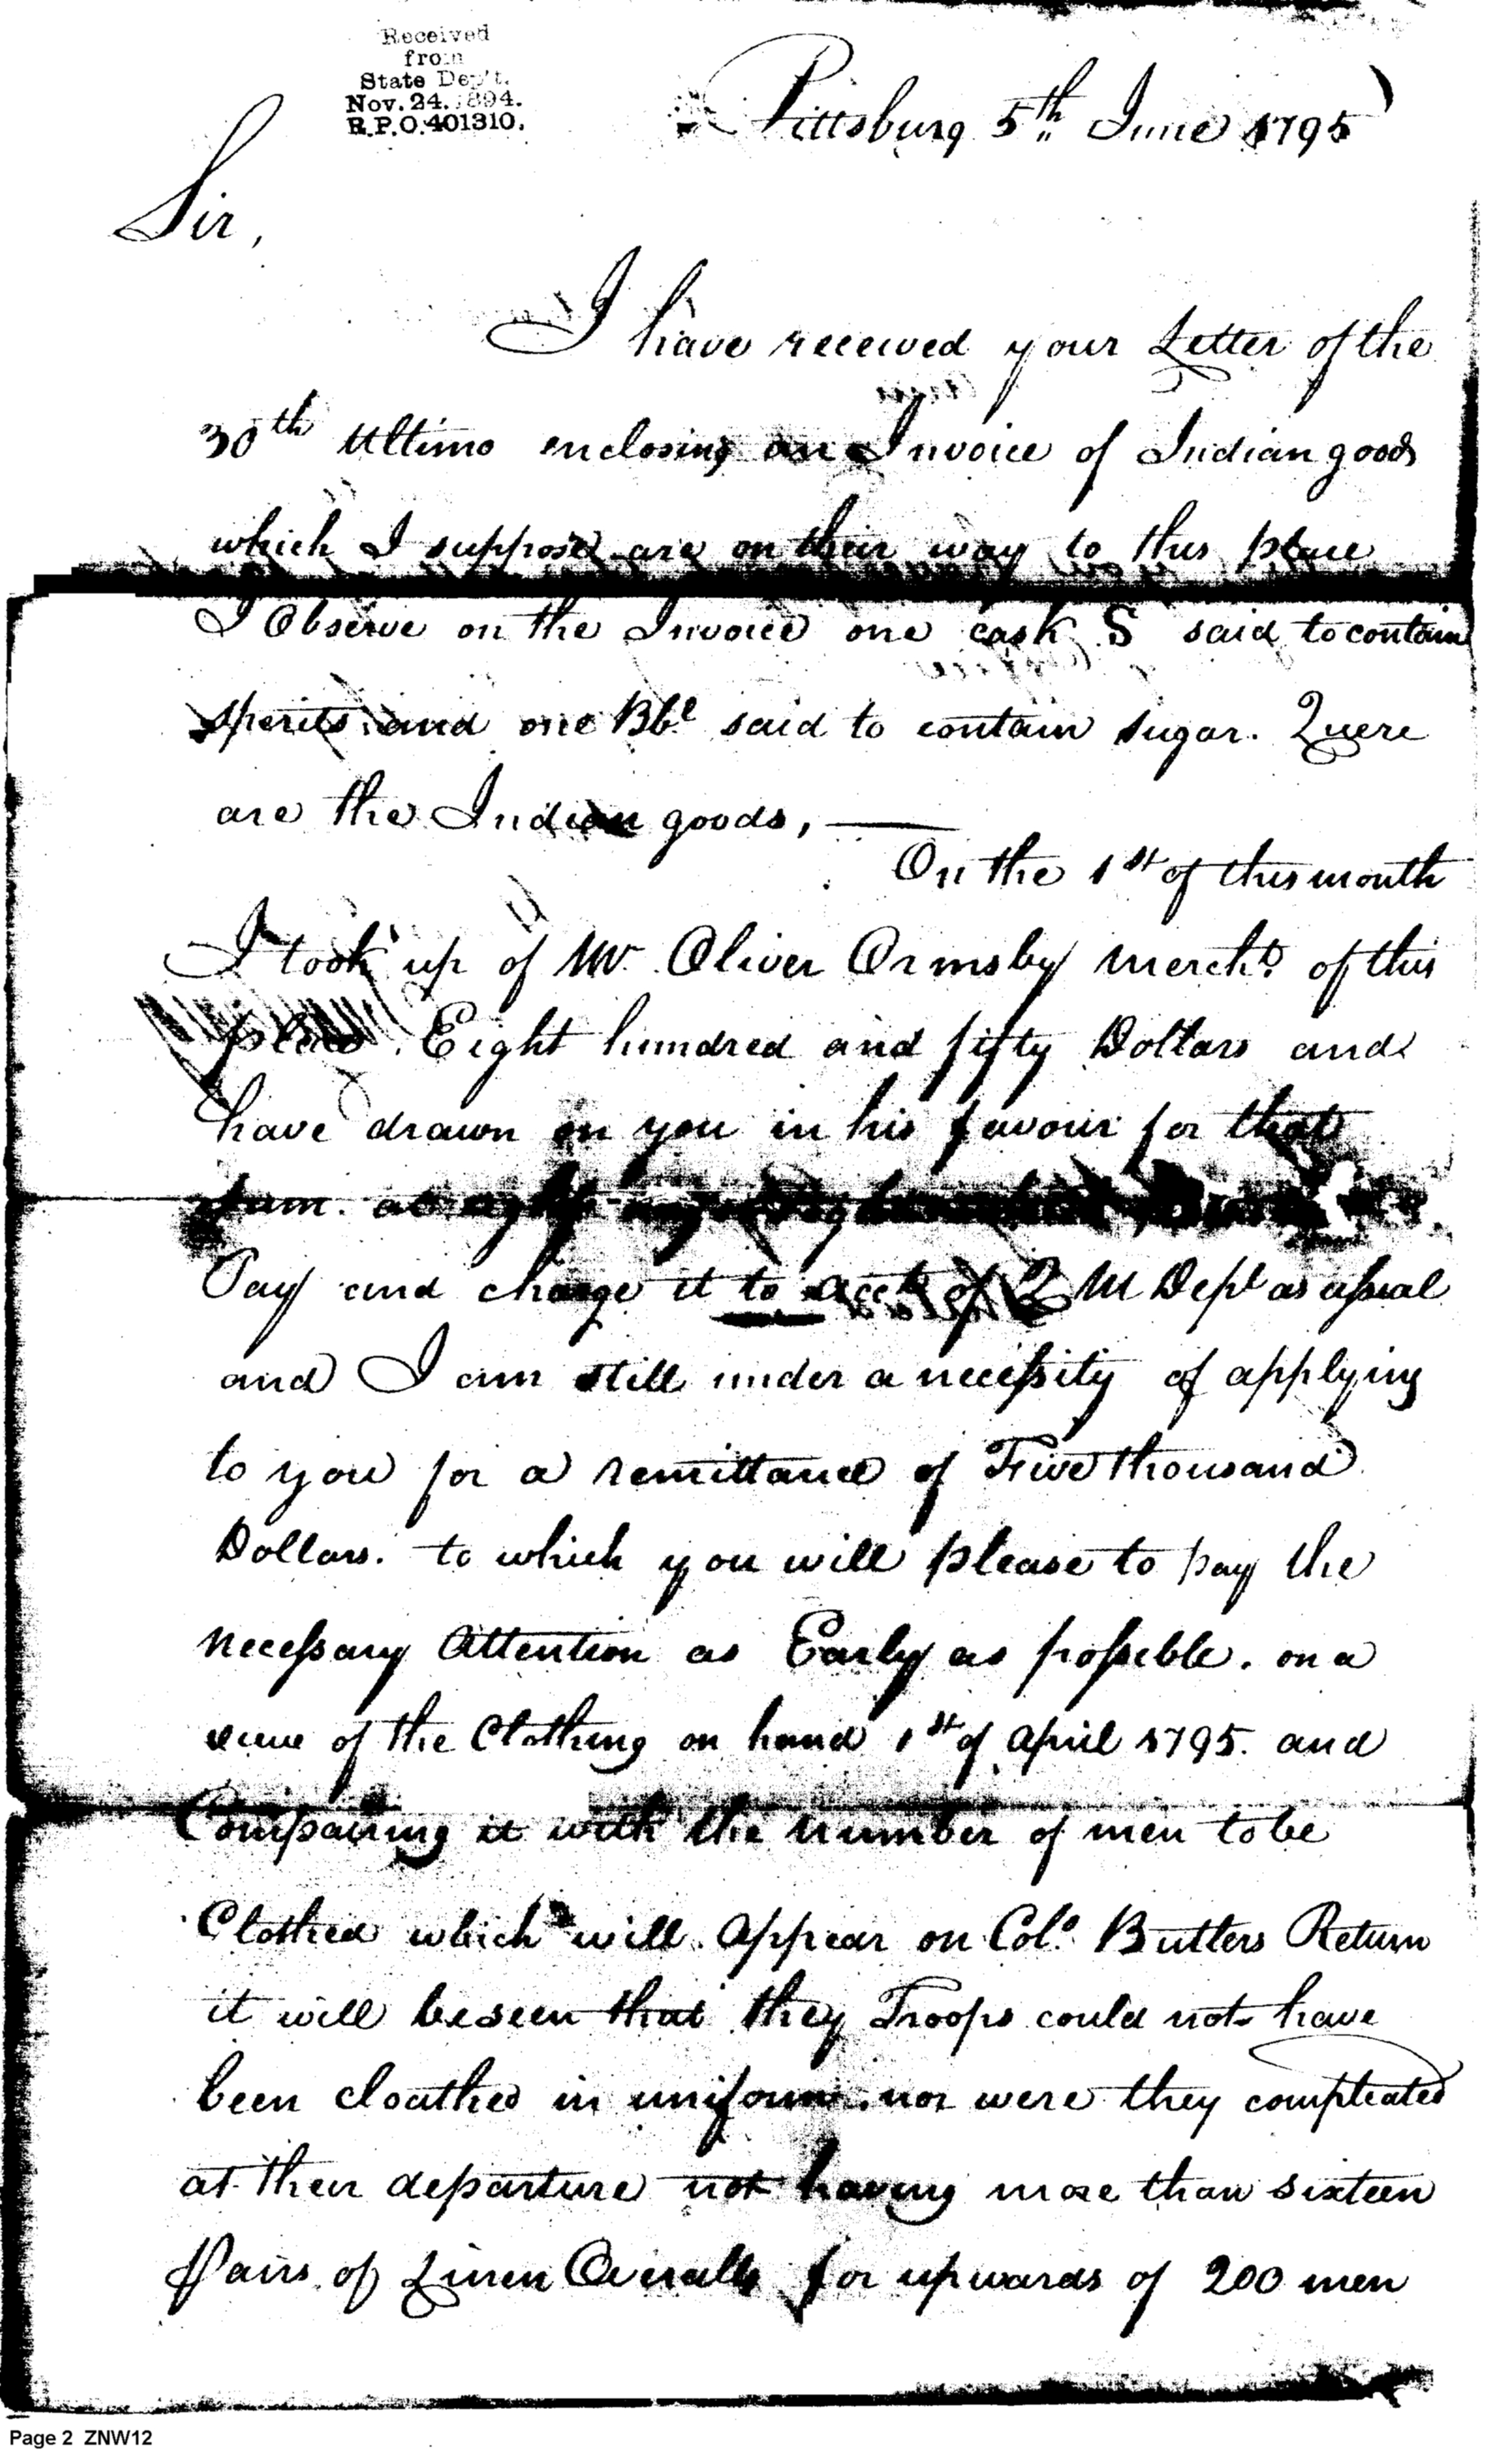 Received
from
State Dep't.
Nov. 24. 1894.
R.P.O. 401310.
Pittsburg 5th June 1795
Sir,
I have received your Letter of the
30th Ultimo enclosing an Invoice of Indian goods
which I suppose are on their way to this place
I Observe on the Invoice one cask S said to contain
sperits and one Bbl said to contain sugar. Quere
are the Indian goods, —
On the 1st of this month
I took up of Mr. Oliver Ormsby mercht. of this
place. Eight hundred and fifty Dollars and
have drawn on you in his favour for that
sum. at
Pay and charge it to acct of Q M Dept as usual
and I am still under a necessity of applying
to you for a remittance of Five thousand
Dollars. to which you will please to pay the
necessary Attention as Early as possible. on a
view of the Clothing on hand 1st of April 1795. and
Compairing it with the number of men to be
Clothed which will appear on Colo. Butlers Return
it will be seen that they Troops could not have
been cloathed in uniform. nor were they compleated
at their departure not having more than sixteen
Pairs of Linen Overalls for upwards of 200 men
Page 2 ZNW12